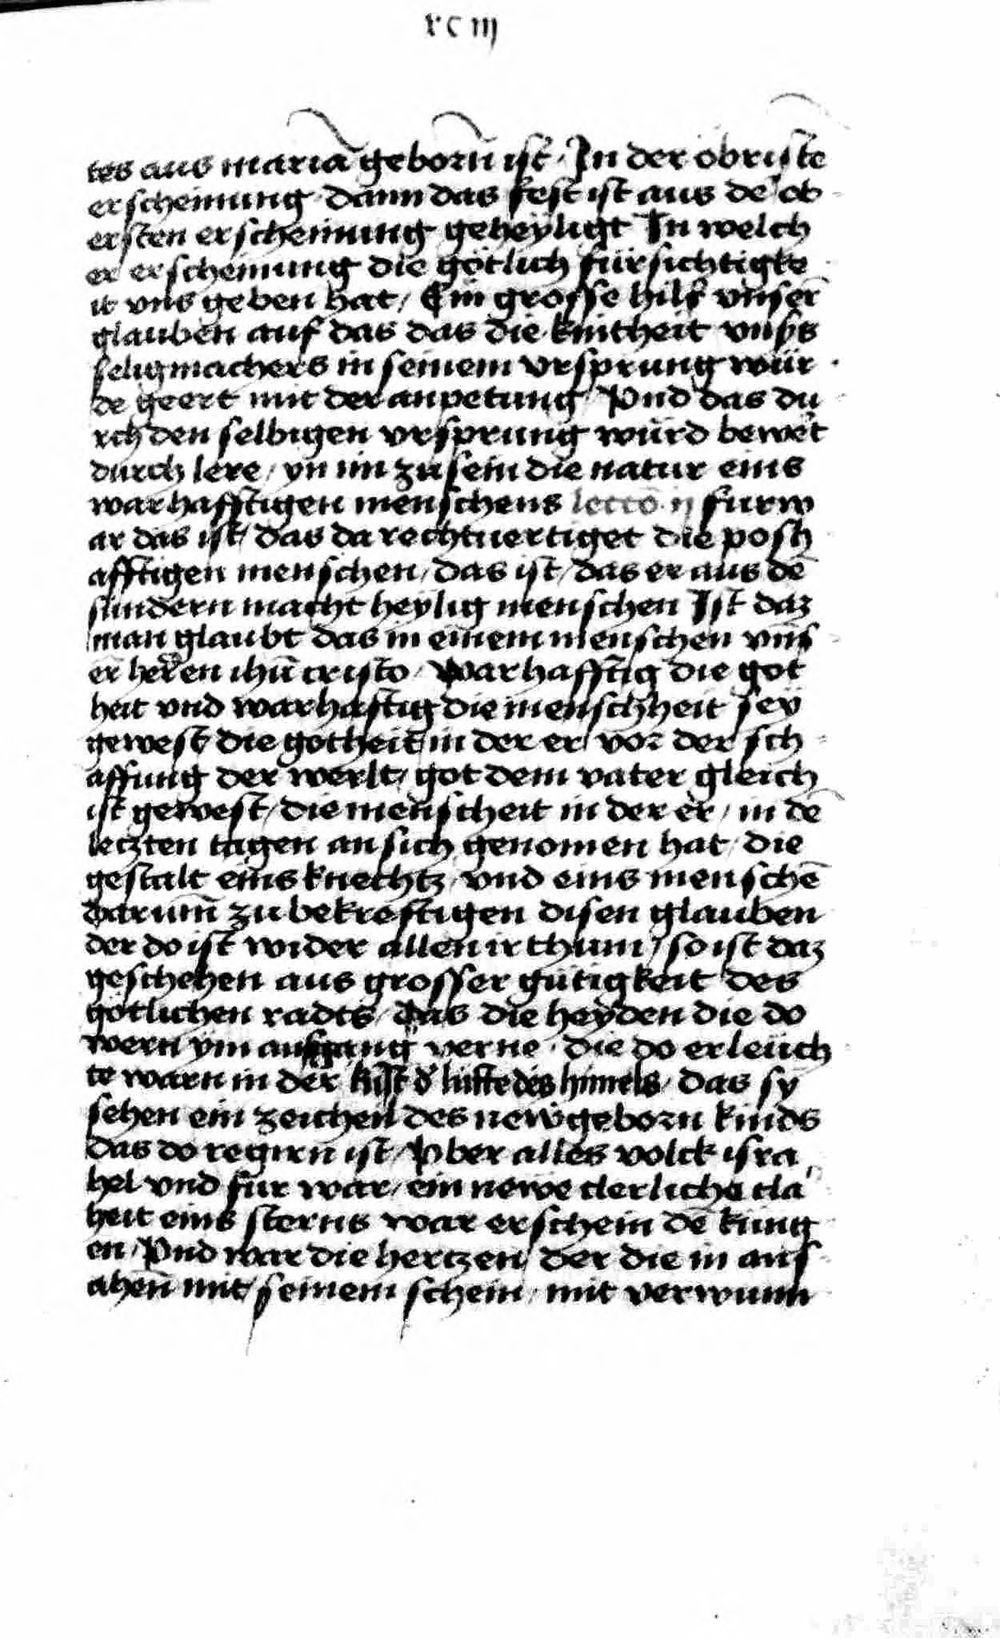 xc iij
tes aus mariā geborn̄ ist · In der öbristē
erscheinung · dann das fest ist aus de' ob
ersten erscheinung geheyligt In welch
er erscheinung die götlich fürsichtigke
it vns geben hat / Ein grosse hilf vnser̄
glauben auf das das die kintheit vnsers
seligmachers in seinem vrsprung wür
de geert mit der anpetung / Vnd das du
rch den selbigen vrsprung würd bewert
durch lere / yn im zu sein die natur eins
warhafftigen menschens lectō ij fürw
ar das ist / das da rechtuertiget die posh
afftigen menschen / das ist / das er aus dē
sündern macht heylig menschen Ist daz
man glaubt das in einem menschen vns
er̄ herren ihū cristo / warhafftig die got
heit vnd warhaftig die menschheit sey
gewest / die gotheit in der er / vor der sch
affung der werlt / got dem vater gleich
ist gewest / die menscheit in der er / in dē
letzten tagen an sich genomen hat / die
gestalt eins knechtz / vnd eins menschē
Darum̄ zu bekreftigen disen glauben
der do ist wider allen irthum / so ist daz
geschehen aus grosser gütigkeit des
götlichen radts / Das die heyden die do
wern ym aufgang verne · die do erleuch
te warn in der kūst d' lufte des himels / das sy
sehen ein zeichen des newgeborn kinds
das do regirn ist / Vber alles volck isra
hel vnd für war / ein newe clerliche cla
heit eins sterns war erschein dē küng
en / Vnd war die hertzen / der die in ans
ahen̄ mit seinem schein / mit verwunn